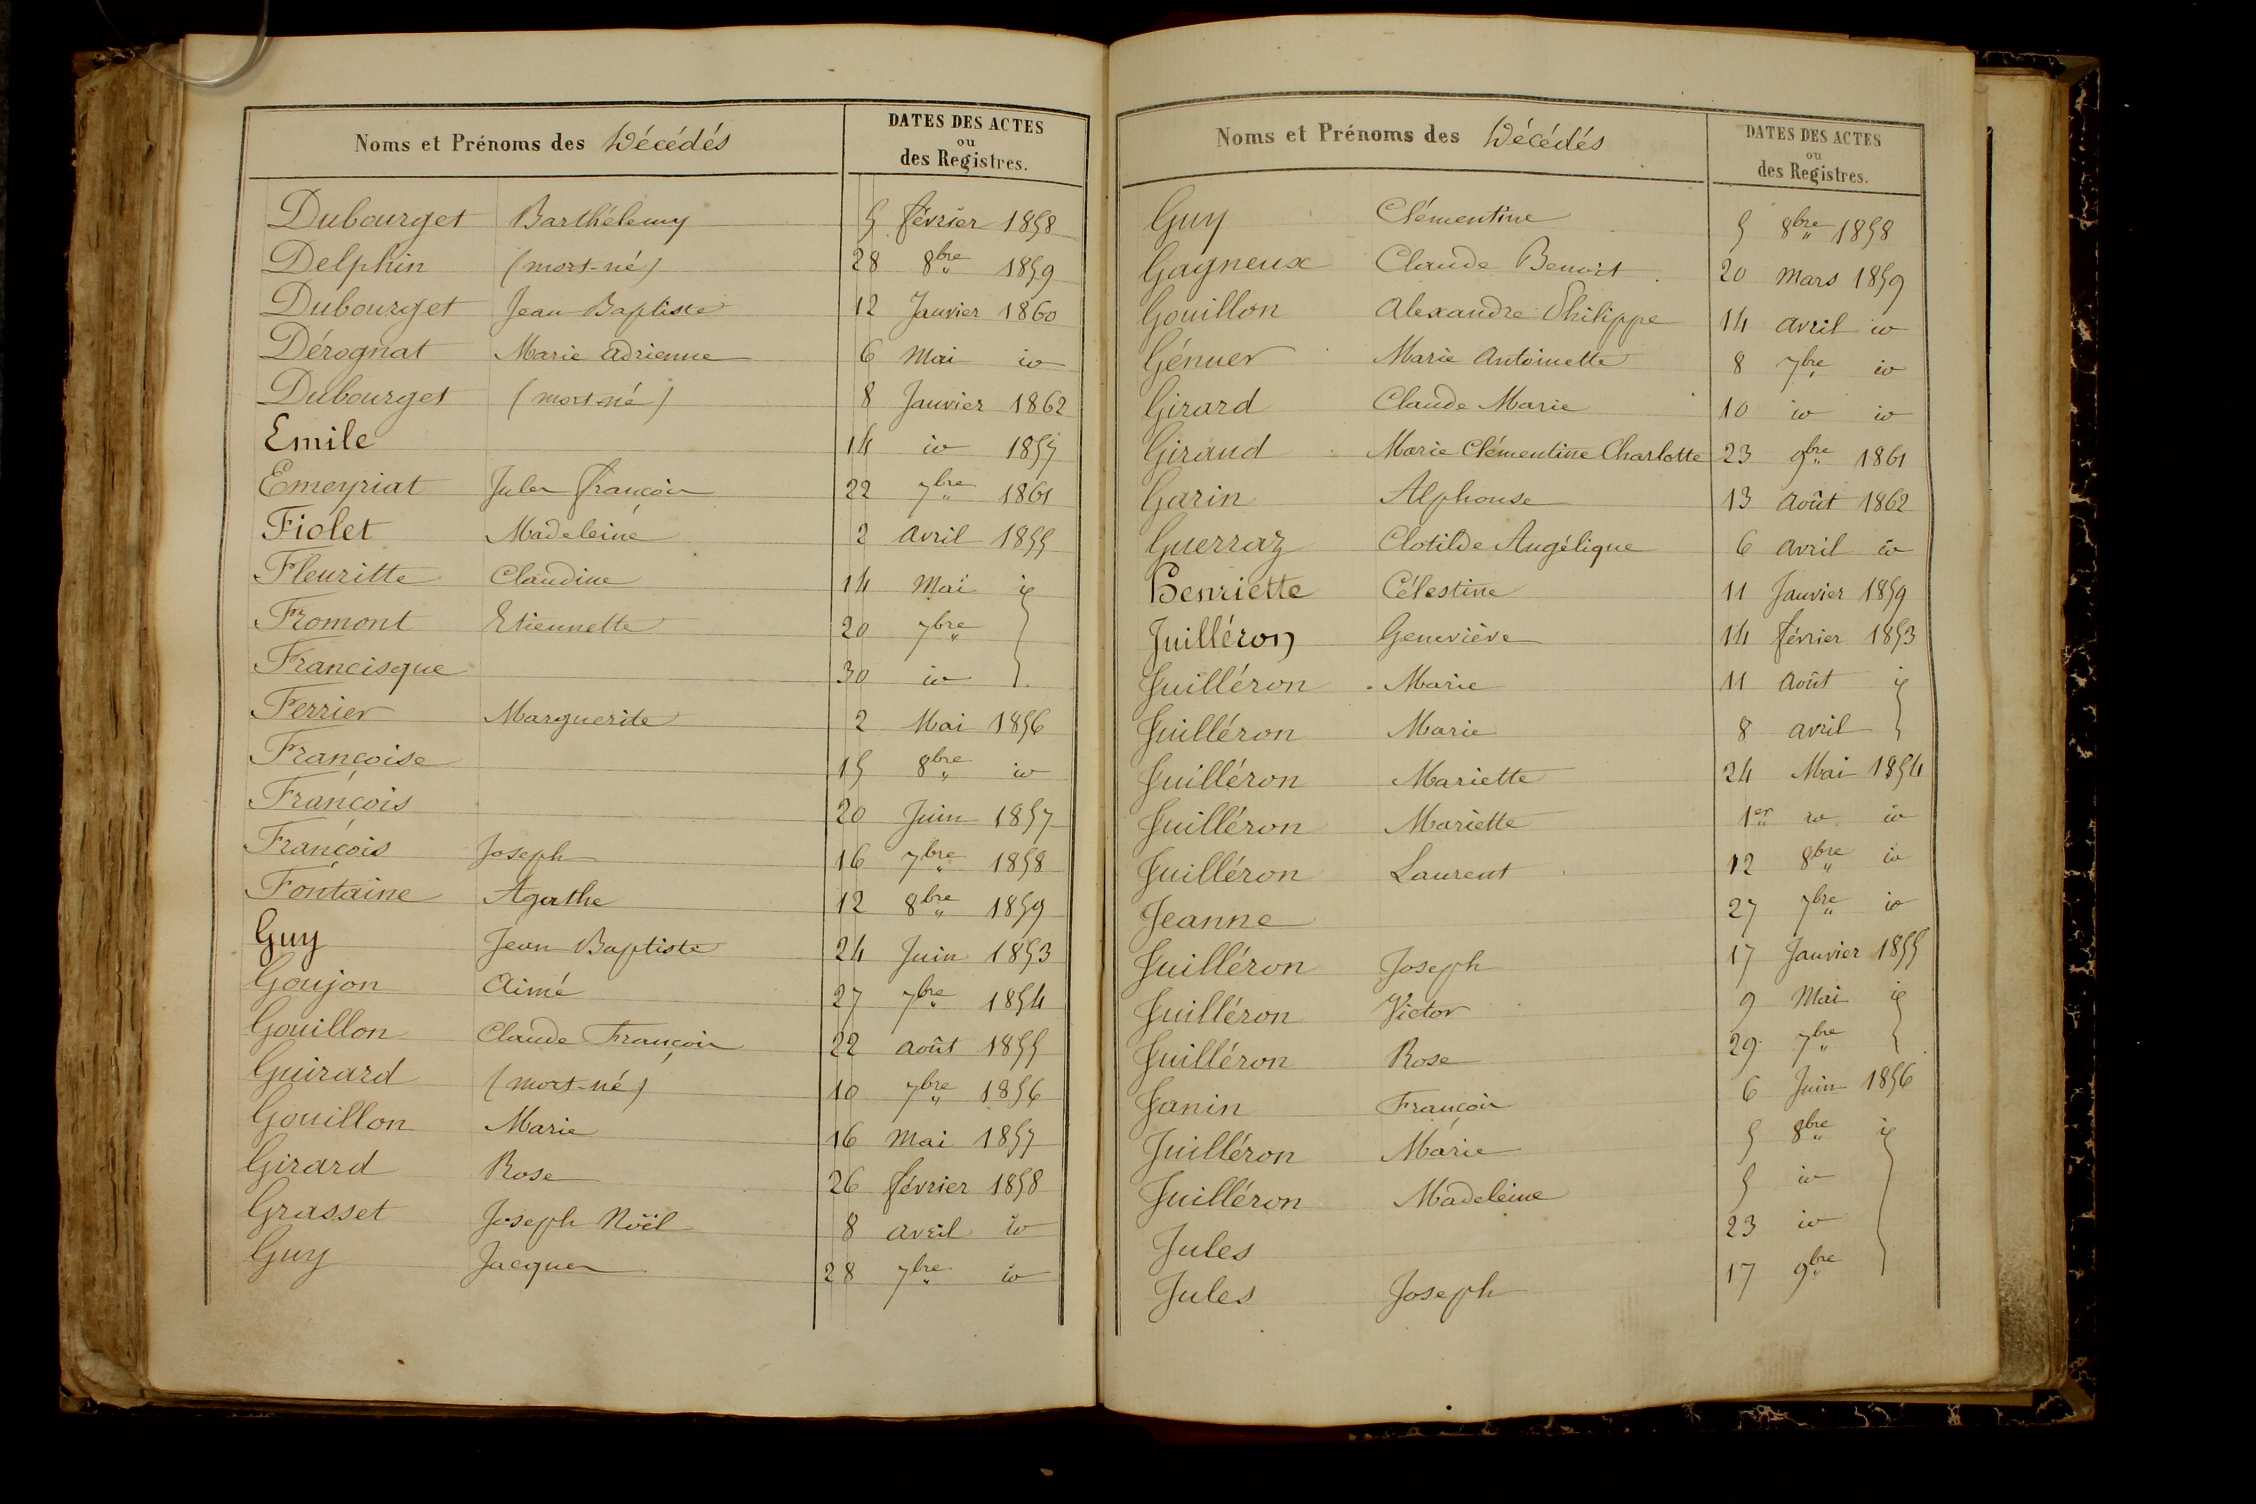 Noms et Prénoms des Décédés
DATES DES ACTES
ou
des Registres.
Dubourget Barthélemy 5 février 1858
Delphin (mort-né) 28 8bre 1859
Dubourget Jean Baptiste 12 Janvier 1860
Dérognat Marie Adrienne 6 Mai id
Dubourget (mort-né) 8 Janvier 1862
Emile 14 id 1857
Emeyriat Jules François 22 7bre 1861
Fiolet Madeleine 2 Avril 1855
Fleuritte Claudine 14 Mai id
Fromont Etiennette 20 7bre
Francisque 30 id
Ferrier Marguerite 2 Mai 1856
Françoise 15 8bre id
François 20 Juin 1857
François Joseph 16 7bre 1858
Fontaine Agathe 12 8bre 1859
Guy Jean Baptiste 24 Juin 1853
Goujon Aimé 27 7bre 1854
Gouillon Claude François 22 août 1855
Guirard (mort-né) 10 7bre 1856
Gouillon Marie 16 Mai 1857
Girard Rose 26 février 1858
Grasset Joseph Noël 8 avril id
Guy Jacques 28 7bre id
Noms et Prénoms des Décédés
DATES DES ACTES
ou
des Registres.
Guy Clémentine 5 8bre 1858
Gagneux Claude Benoit 20 Mars 1859
Gouillon Alexandre Philippe 14 avril id
Génuer Marie Antoinette 8 7bre id
Girard Claude Marie 10 id id
Giraud Marie Clémentine Charlotte 23 9bre 1861
Garin Alphonse 13 Août 1862
Guerraz Clotilde Angélique 6 avril id
Henriette Célestine 11 Janvier 1859
Juilléron Geneviève 14 février 1853
Juilléron Marie 11 Août id
Juilléron Marie 8 avril
Juilléron Mariette 24 Mai 1854
Juilléron Mariette 1er id id
Juilléron Laurent 12 8bre id
Jeanne 27 7bre id
Juilléron Joseph 17 Janvier 1855
Juilléron Victor 9 Mai id
Juilléron Rose 29 7bre
Janin François 6 Juin 1856
Juilléron Marie 5 8bre id
Juilléron Madeleine 5 id
Jules 23 id
Jules Joseph 17 9bre